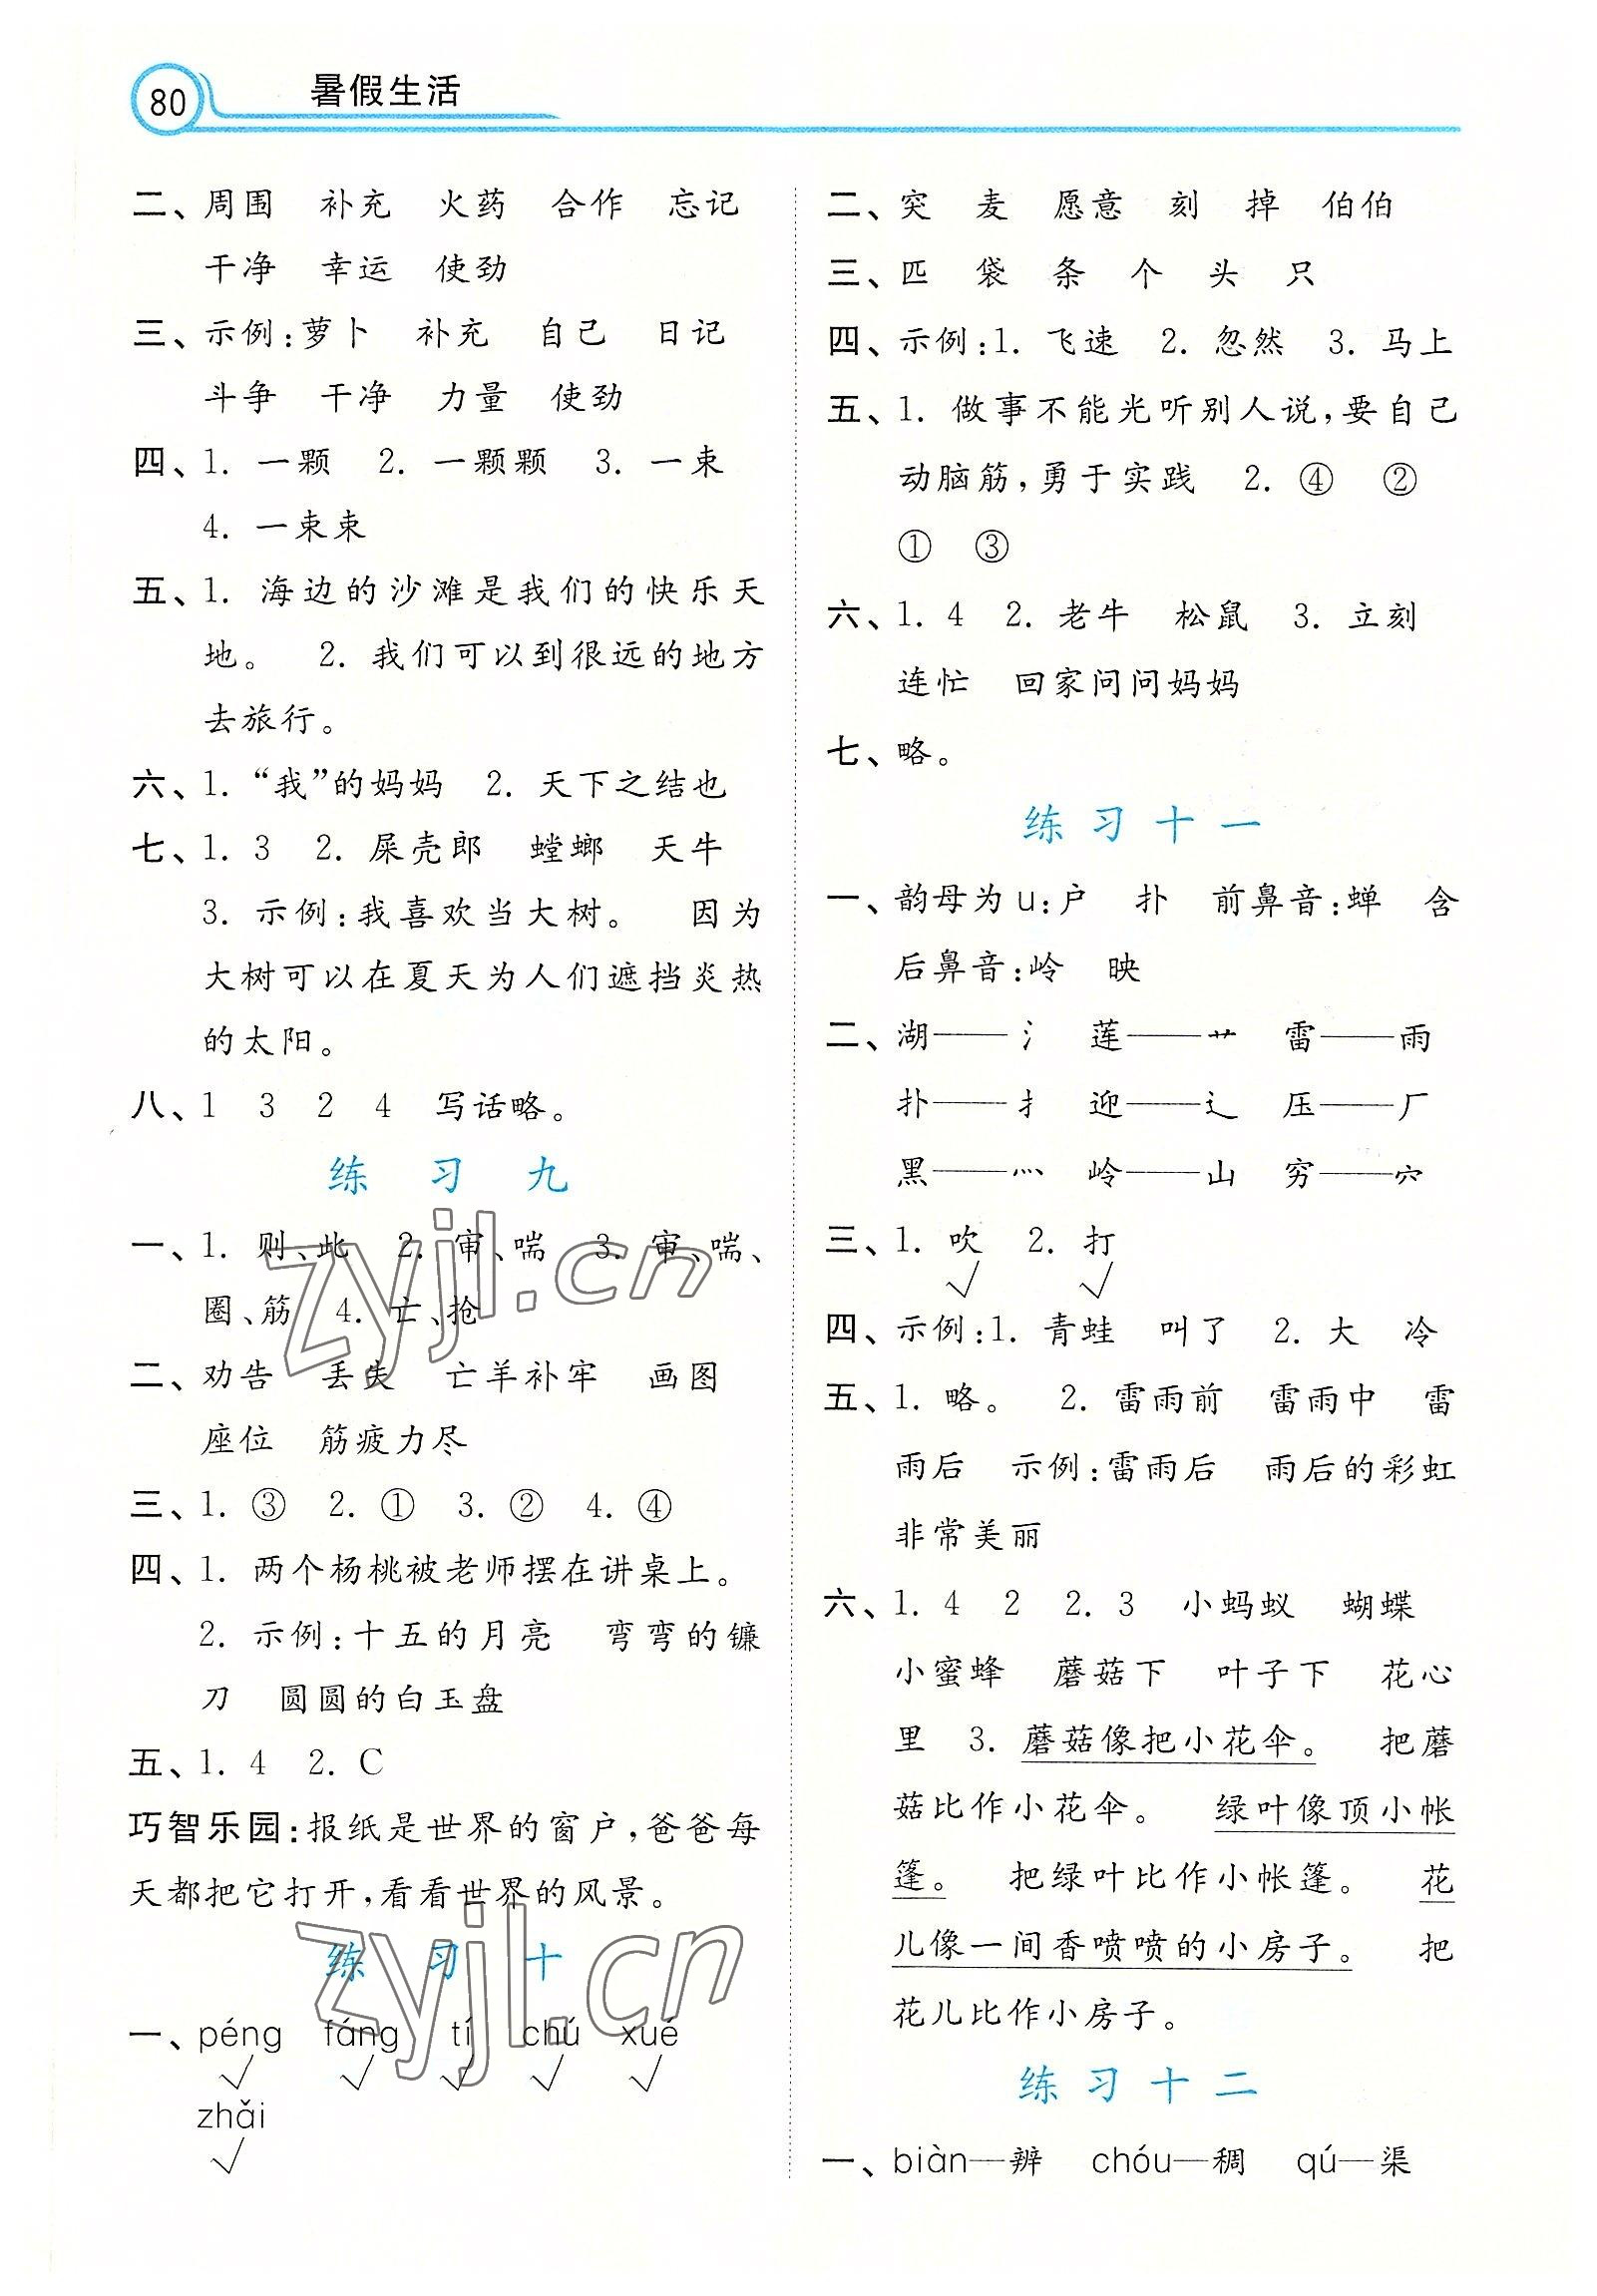 80
暑假生活
二、周围 补充 火药 合作 忘记
干净 幸运 使劲
三、示例:萝卜 补充 自己 日记
斗争 干净 力量 使劲
四、1. 一颗 2. 一颗颗 3. 一束
4. 一束束
五、1. 海边的沙滩是我们的快乐天
地。 2. 我们可以到很远的地方
去旅行。
六、1. “我”的妈妈 2. 天下之结也
七、1. 3 2. 屎壳郎 螳螂 天牛
3. 示例:我喜欢当大树。 因为
大树可以在夏天为人们遮挡炎热
的太阳。
八、1 3 2 4 写话略。
练习九
一、1. 则、此 2. 审、喘 3. 审、喘、
圈、筋 4. 亡、抢
二、劝告 丢失 亡羊补牢 画图
座位 筋疲力尽
三、1. ③ 2. ① 3. ② 4. ④
四、1. 两个杨桃被老师摆在讲桌上。
2. 示例:十五的月亮 弯弯的镰
刀 圆圆的白玉盘
五、1. 4 2. C
巧智乐园:报纸是世界的窗户,爸爸每
天都把它打开,看看世界的风景。
练习十
一、péng fáng tí chú xué
√ √ √ √ √
zhǎi
√
二、突 麦 愿意 刻 掉 伯伯
三、匹 袋 条 个 头 只
四、示例:1. 飞速 2. 忽然 3. 马上
五、1. 做事不能光听别人说,要自己
动脑筋,勇于实践 2. ④ ②
① ③
六、1. 4 2. 老牛 松鼠 3. 立刻
连忙 回家问问妈妈
七、略。
练习十一
一、韵母为u:户 扑 前鼻音:蝉 含
后鼻音:岭 映
二、湖——氵 莲——艹 雷——雨
扑——扌 迎——辶 压——厂
黑——灬 岭——山 穷——穴
三、1. 吹 2. 打
√ √
四、示例:1. 青蛙 叫了 2. 大 冷
五、1. 略。 2. 雷雨前 雷雨中 雷
雨后 示例:雷雨后 雨后的彩虹
非常美丽
六、1. 4 2 2. 3 小蚂蚁 蝴蝶
小蜜蜂 蘑菇下 叶子下 花心
里 3. 蘑菇像把小花伞。 把蘑
菇比作小花伞。 绿叶像顶小帐
篷。 把绿叶比作小帐篷。 花
儿像一间香喷喷的小房子。 把
花儿比作小房子。
练习十二
一、biàn—辨 chóu—稠 qú—渠
zyjl.cn
zyjl.cn